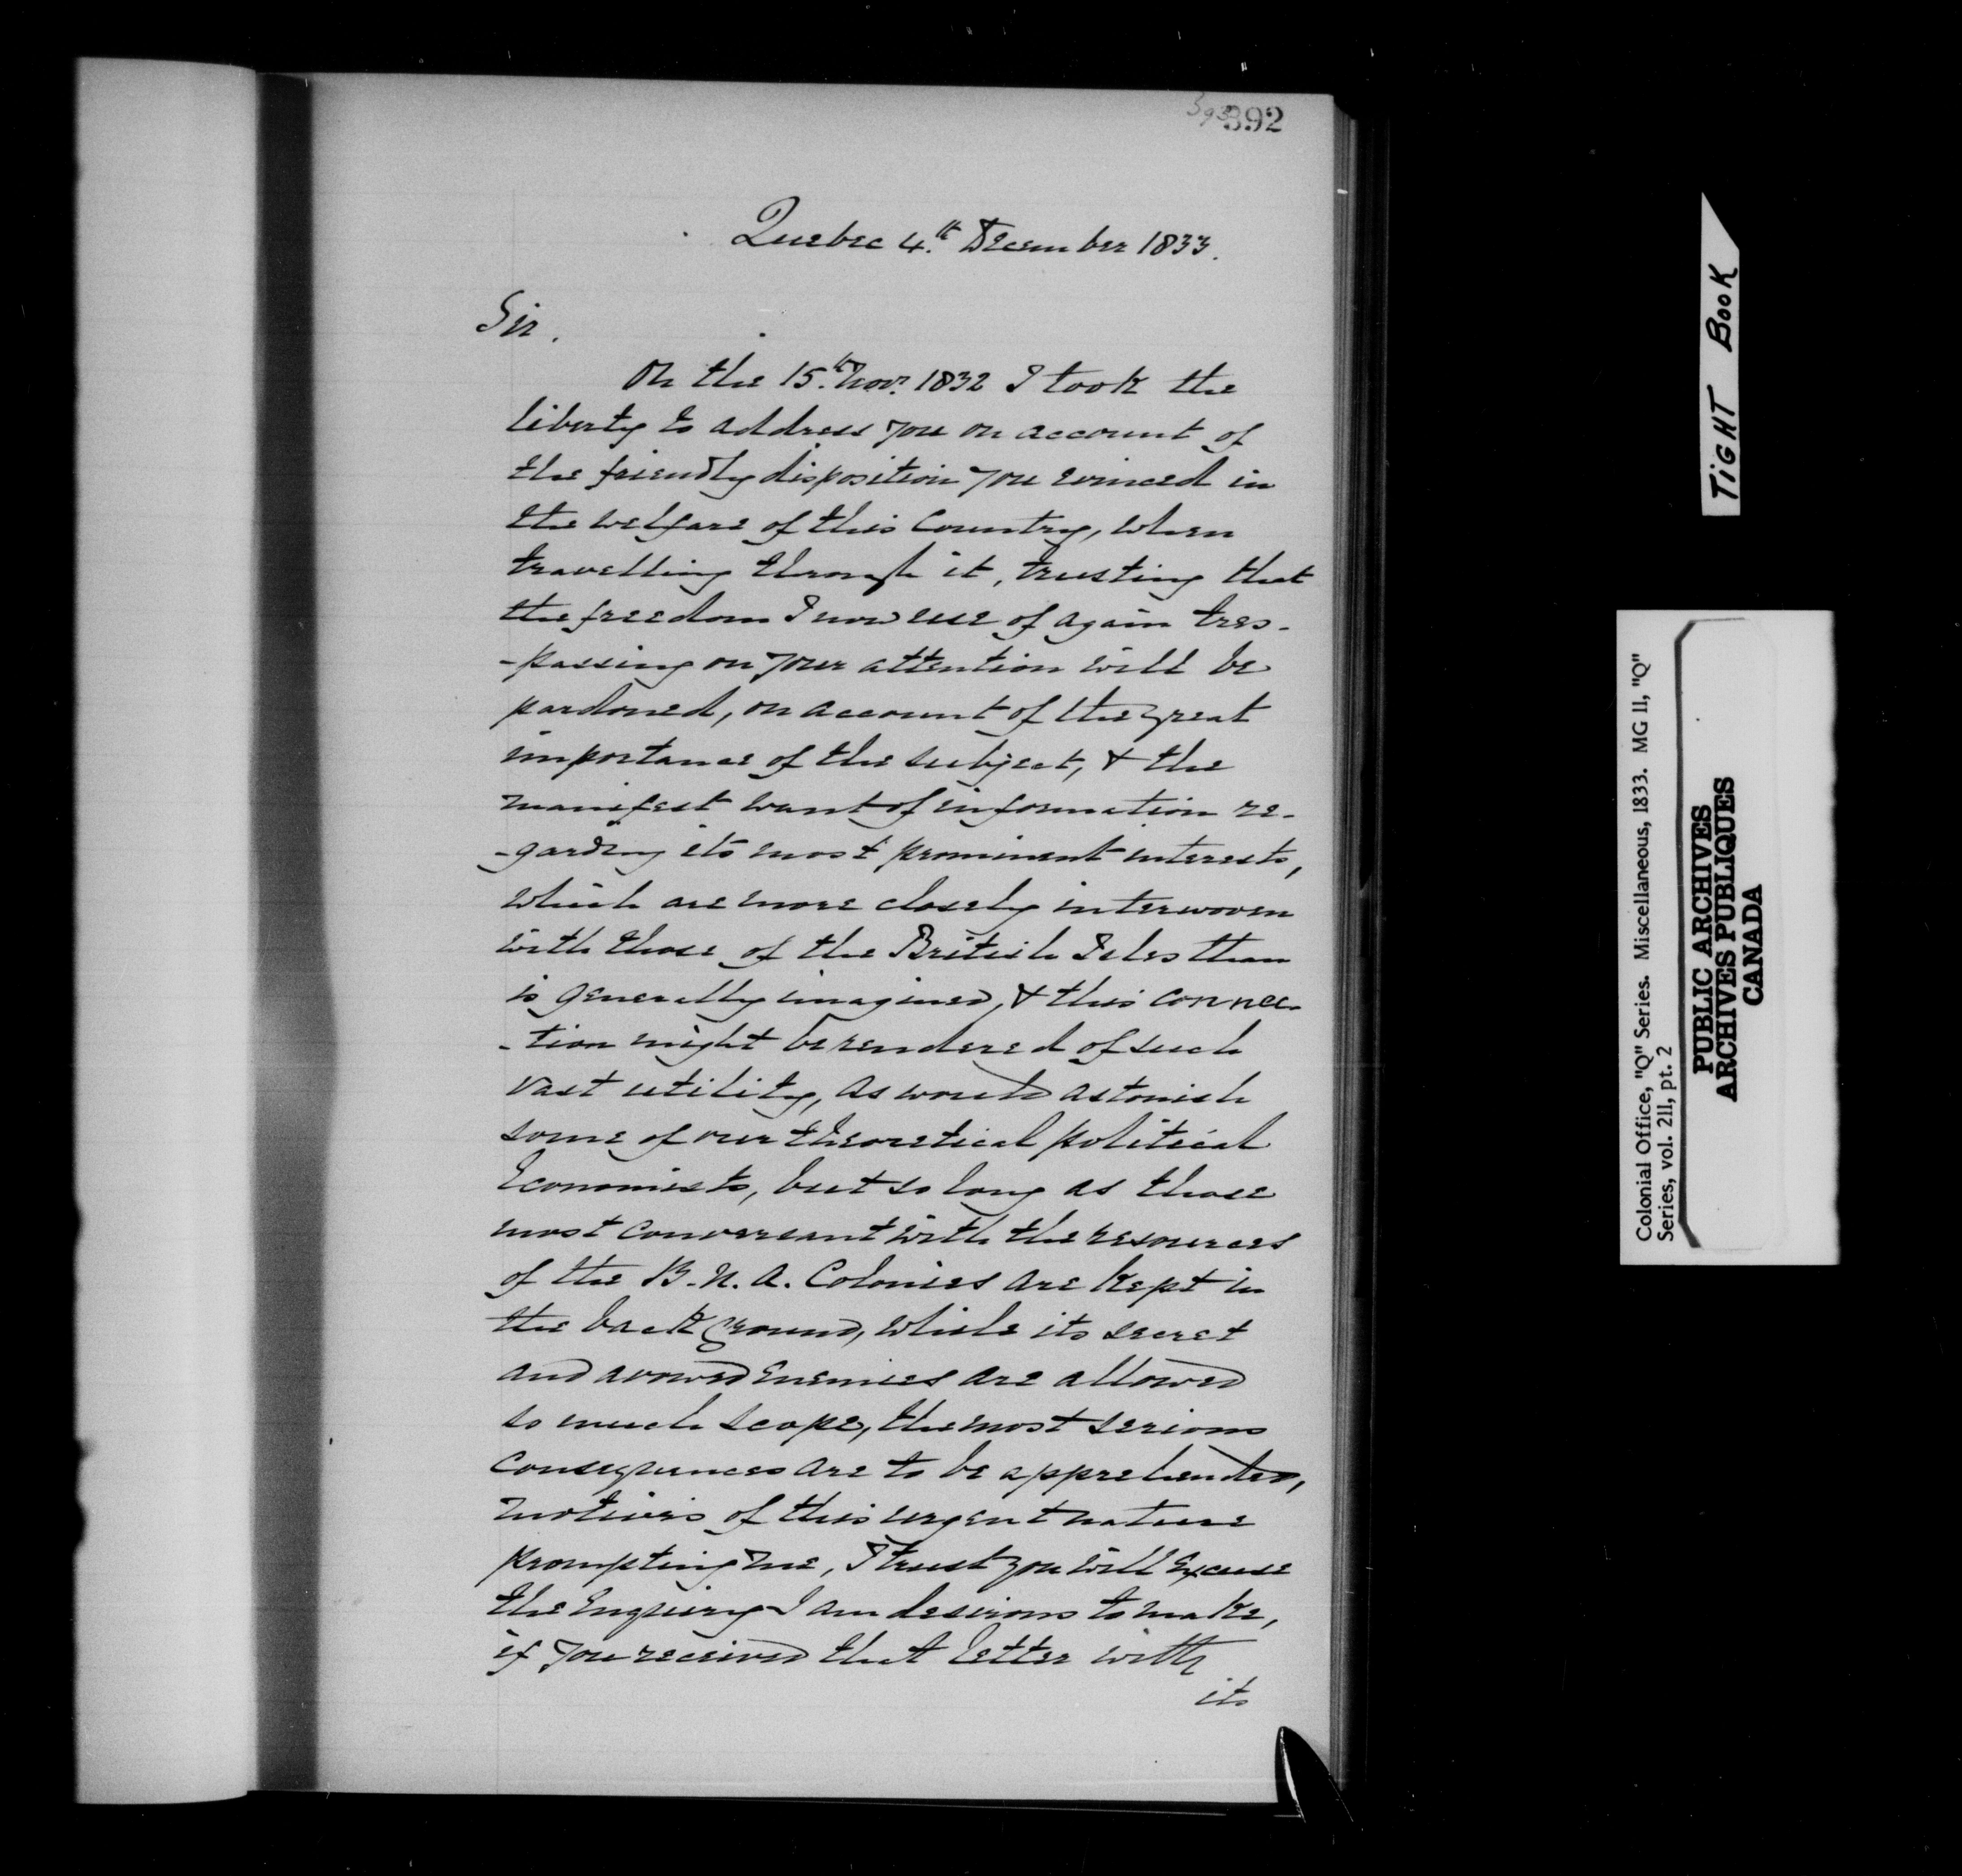 392
Quebec 4.th December 1833.
Sir.
On the 15.th Novr. 1832 I took the
liberty to address you on account of
the friendly disposition you evinced in
the welfare of this Country, when
travelling through it, trusting that
the freedom I now use of again tres-
-passing on your attention will be
pardoned, on account of the great
importance of the subject, & the
manifest want of information re-
-garding its most prominent interests,
which are more closely interwoven
with those of the British Isles than
is generally imagined, & this connec-
-tion might be rendered of such
vast utility, as would astonish
some of our theoretical political
Economists, but so long as those
most conversant with the resources
of the B. N. A. Colonies are kept in
the back ground, while its secret
and avowed Enemies are allowed
so much scope, the most serious
consequences are to be apprehended,
motives of this urgent nature
prompting me, I trust you will Excuse
the Enquiry I am desirous to make,
if you received that letter with
its
TIGHT BOOK
Colonial Office, "Q" Series. Miscellaneous, 1833. MG 11, "Q"
Series, vol. 211, pt. 2
PUBLIC ARCHIVES
ARCHIVES PUBLIQUES
CANADA